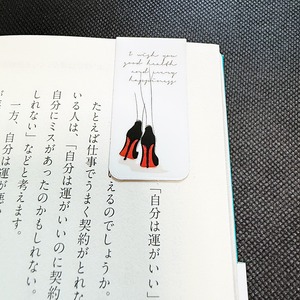 I wish you
good health
and every
happiness
「自分は運がいい」
えるのでしょうか。
たとえば仕事でうまく契約がとれな
いる人は、「自分は運がいいのに契約
自分にミスがあったのかもしれない。
しれない」などと考えます。
一方、自分は運が悪